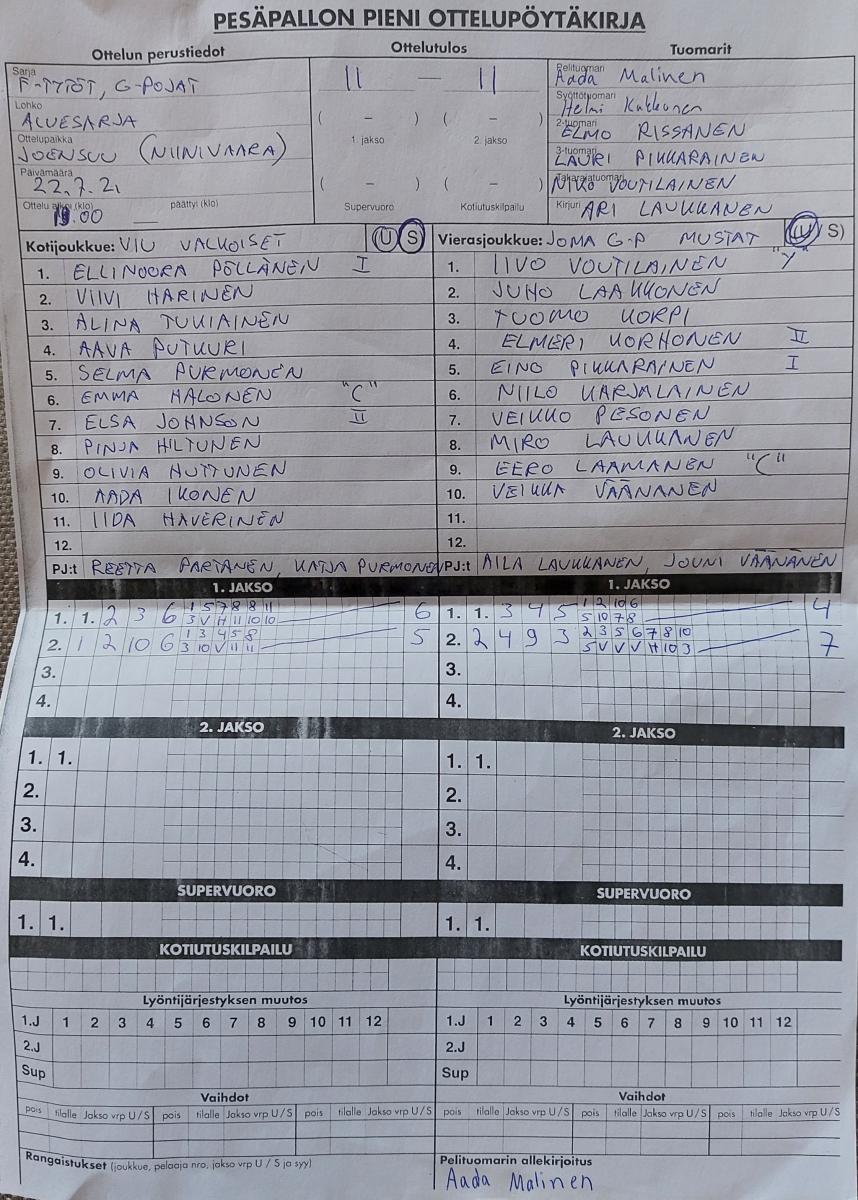 PESÄPALLON PIENI OTTELUPÖYTÄKIRJA
Ottelun perustiedot
Sarja
F-TYTÖT, G-POJAT
Lohko
ALUESARJA
Ottelupaikka
JOENSUU (NIINIVAARA)
Päivämäärä
22.7.21
Ottelu alkoi (klo) päättyi (klo)
.00
Ottelutulos
11 — 11
( – ) ( – )
1. jakso 2. jakso
( – ) ( – )
Supervuoro Kotiutuskilpailu
Tuomarit
Pelituomari
Aada Malinen
Syöttötuomari
Helmi Kakkonen
2-tuomari
ELMO RISSANEN
3-tuomari
LAURI PIKKARAINEN
Takarajatuomari
NIKO VOUTILAINEN
Kirjuri ARI LAUKKANEN
Kotijoukkue: VIU VALKOISET (U S)
1. ELLINOORA PÖLLÄNEN I
2. VIIVI HARINEN
3. ALINA TUKIAINEN
4. AAVA PUTKURI
5. SELMA PURMONEN
6. EMMA HALONEN "C"
7. ELSA JOHNSON II
8. PINJA HILTUNEN
9. OLIVIA HUTTUNEN
10. AADA IKONEN
11. IIDA HAVERINEN
12.
PJ:t REETTA PARTANEN, KATJA PURMONEN
Vierasjoukkue: JOMA G-P MUSTAT (U S)
1. IIVO VOUTILAINEN "Y"
2. JUHO LAAKKONEN
3. TUOMO KORPI
4. ELMERI KORHONEN II
5. EINO PIKKARAINEN I
6. NIILO KARJALAINEN
7. VEIKKO PESONEN
8. MIRO LAUKKANEN
9. EERO LAAMANEN "C"
10. VEIKKA VÄÄNÄNEN
11.
12.
PJ:t AILA LAUKKANEN, JOUNI VÄÄNÄNEN
1. JAKSO
1. 1. 2 3 6 1 5 7 8 8 11 6
3 V H 11 10 10
2. 1 2 10 6 1 3 4 5 8 5
3 10 V 11 11
3.
4.
1. JAKSO
1. 1. 3 4 5 1 2 10 6 4
5 10 7 8
2. 2 4 9 3 2 3 5 6 7 8 10 7
5 V V V H 10 3
3.
4.
2. JAKSO
1. 1.
2.
3.
4.
2. JAKSO
1. 1.
2.
3.
4.
SUPERVUORO
1. 1.
SUPERVUORO
1. 1.
KOTIUTUSKILPAILU
KOTIUTUSKILPAILU
Lyöntijärjestyksen muutos
1.J 1 2 3 4 5 6 7 8 9 10 11 12
2.J
Sup
Lyöntijärjestyksen muutos
1.J 1 2 3 4 5 6 7 8 9 10 11 12
2.J
Sup
Vaihdot
pois tilalle Jakso vrp U/S pois tilalle Jakso vrp U/S pois tilalle Jakso vrp U/S
Vaihdot
pois tilalle Jakso vrp U/S pois tilalle Jakso vrp U/S pois tilalle Jakso vrp U/S
Rangaistukset (joukkue, pelaaja nro, jakso vrp U / S ja syy)
Pelituomarin allekirjoitus
Aada Malinen